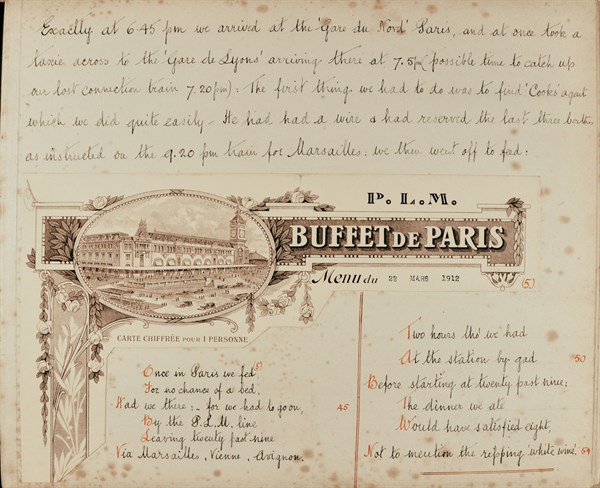 Exactly at 6 45 pm we arrived at the 'Gare du Nord' Paris, and at once took a
taxie across to the 'Gare de Lyons' arriving there at 7.5 pm (possible time to catch up
our lost connection train 7.20 pm): The first thing we had to do was to find 'Cooks' agent
which we did quite easily - He had had a wire & had reserved the last three berths
as instructed on the 9.20 pm train for Marsailles: we then went off to feed:
P. L. M.
BUFFET DE PARIS
Menu du 22 MARS 1912
(5)
CARTE CHIFFRÉE POUR 1 PERSONNE
Once in Paris we fed 5)
For no chance of a bed,
Had we there: - for we had to go on, 45
By the P.L.M. line
Leaving twenty past nine
Via Marsailles, Vienne, Avignon.
Two hours tho' we had
At the station by gad 50
Before starting at twenty past nine:
The dinner we ate
Would have satisfied eight,
Not to mention the ripping 'white wine'. 54